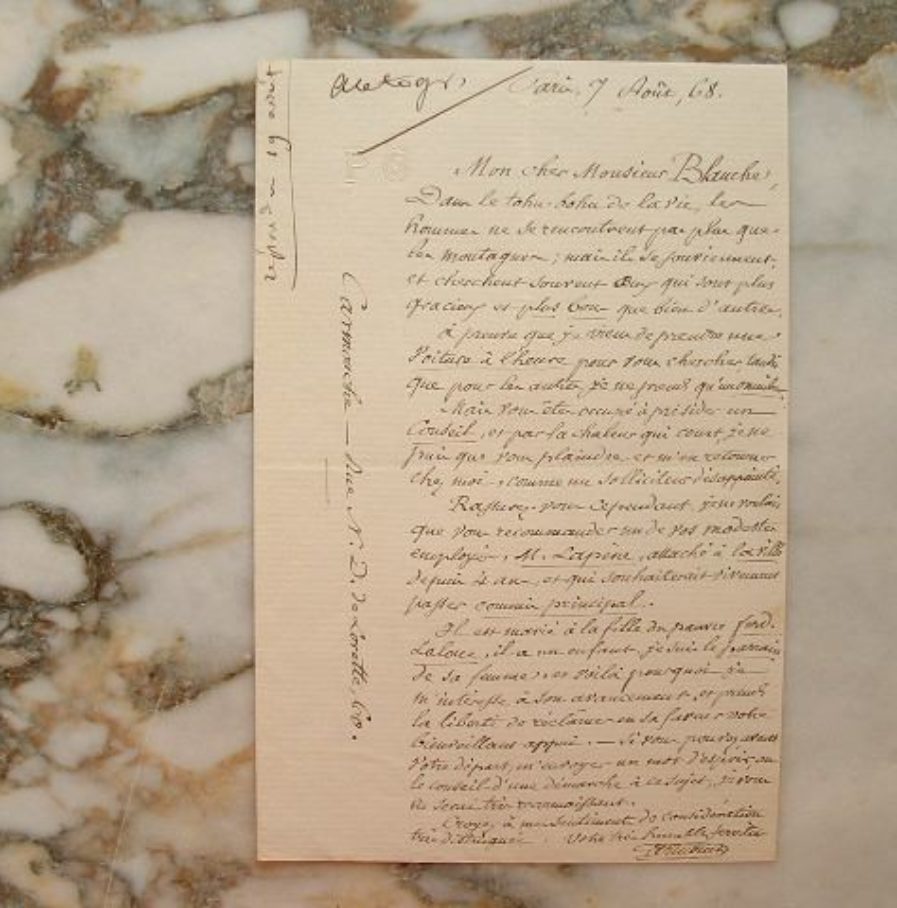 répondu 19 août
autogr.
Paris, 7 Août, 68.
P G
Mon cher Monsieur Blanche,
Dans le tohu-bohu de la vie, les
hommes ne se rencontrent pas plus que
les montagnes ; mais ils se souviennent,
et cherchent souvent ceux qui sont plus
gracieux et plus bons que bien d'autres.
à preuve que je viens de prendre une
voiture à l'heure pour vous chercher tandis
que pour les autres je ne prends qu'un omnibus.
Mais vous êtes occupé à présider un
Conseil, et par la chaleur qui court, je ne
puis que vous plaindre et m'en retourner
chez moi, comme un solliciteur désappointé.
Rassurez-vous cependant, je ne voulais
que vous recommander un de vos modestes
employés, M. Lapène, attaché à la ville
depuis 2 ans, et qui souhaiterait vivement
passer commis principal.
Il est marié à la fille du pauvre ferd.
Laloue, il a un enfant, je suis le parrain
de sa femme, et voilà pourquoi je
m'intéresse à son avancement, et prends
la liberté de réclamer en sa faveur votre
bienveillant appui. — Si vous pouvez avant
votre départ, m'envoyer un mot d'espoir, ou
le conseil d'une démarche à ce sujet, je vous
en serai très reconnaissant.
Croyez à mes sentiments de considération
très distinguée. Votre très humble serviteur
— Rue N. D. de Lorette, 60.